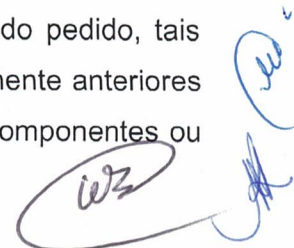 do pedido, tais
nente anteriores
omponentes ou